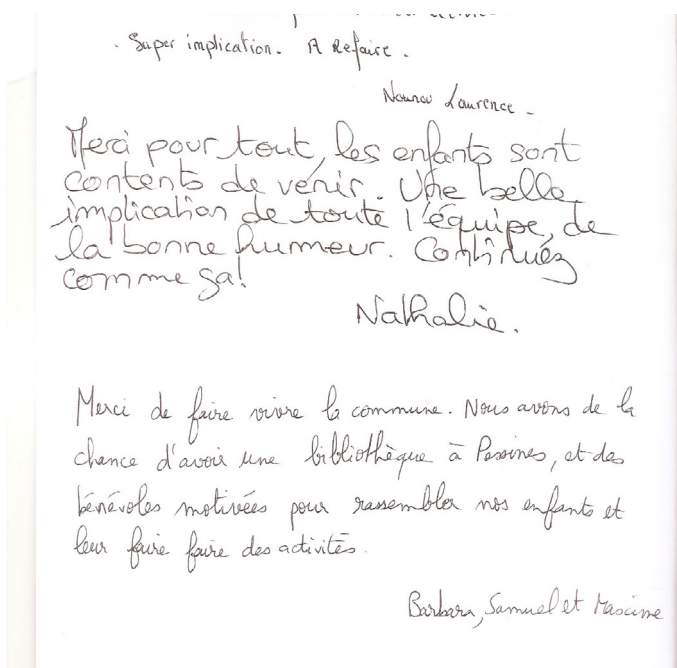 . Super implication. A Refaire.
Nounou Laurence -
Merci pour tout, les enfants sont
contents de venir. Une belle
implication de toute l'équipe, de
la bonne humeur. Continuez
comme ça!
Nathalie.
Merci de faire vivre la commune. Nous avons de la
chance d'avoir une bibliothèque à , et des
bénévoles motivées pour rassembler nos enfants et
leur faire faire des activités.
Barbara, Samuel et Maxime